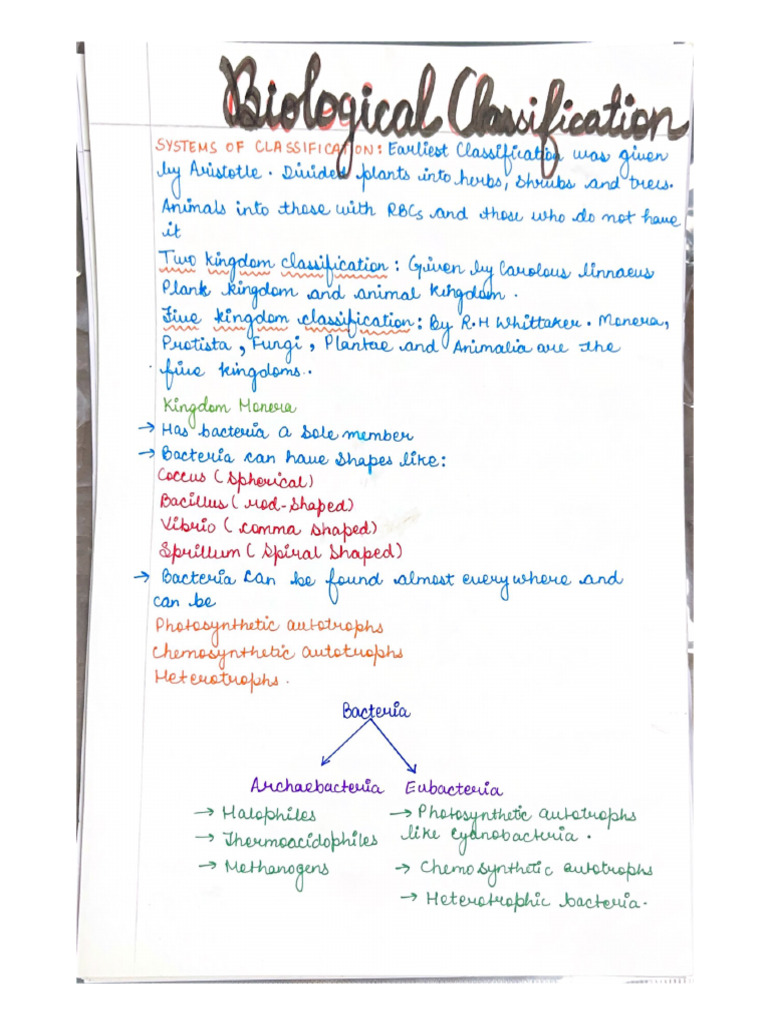 Biological Classification
SYSTEMS OF CLASSIFICATION: Earliest Classification was given
by Aristotle. Divided plants into herbs, shrubs and trees.
Animals into those with RBCs and those who do not have
it
Two kingdom classification: Given by Carolous linnaeus
Plank kingdom and animal kingdom.
Five kingdom classification: By R.H Whittaker. Monera,
Protista, Fungi, Plantae and Animalia are the
five kingdoms.
Kingdom Monera
→ Has bacteria a sole member
→ Bacteria can have shapes like:
Coccus (Spherical)
Bacillus (rod-shaped)
Vibrio (comma shaped)
Sprillum (Spiral shaped)
→ Bacteria can be found almost everywhere and
can be
Photosynthetic autotrophs
Chemosynthetic autotrophs
Heterotrophs.
Bacteria
Archaebacteria Eubacteria
→ Halophiles → Photosynthetic autotrophs
→ Thermoacidophiles like cyanobacteria.
→ Methanogens → Chemosynthetic autotrophs
→ Heterotrophic bacteria.